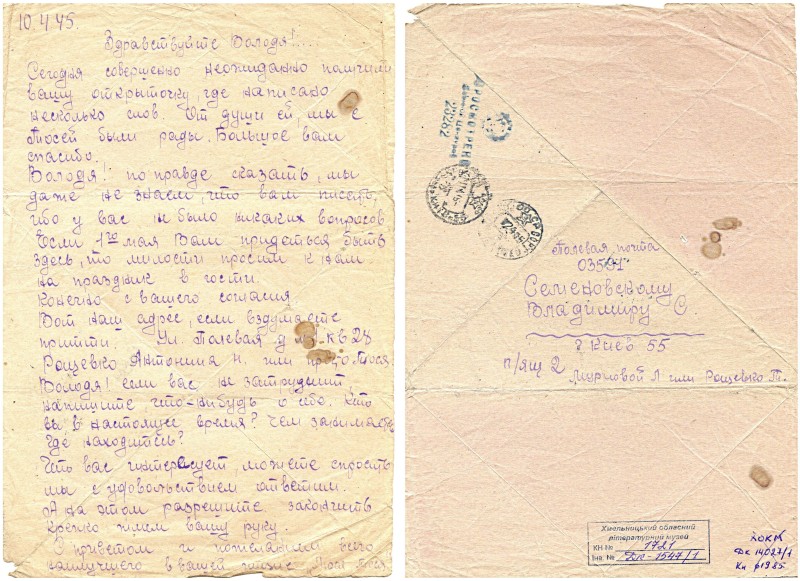 10.4.45.
Здравствуйте Володя!...
Сегодня совершенно неожиданно получили
вашу открыточку, где написано
несколько слов. От души ей, мы с
Тосей были рады. Большое вам
спасибо.
Володя! по правде сказать, мы
даже не знаем, что вам писать,
ибо у вас не было никаких вопросов
Если 1го мая Вам придеться быть
здесь, то милости просим к нам
на праздник в гости.
Конечно с вашего согласия.
Вот наш адрес, если вздумаете
притти. Ул. Полевая д кв 28
Рощевко Антонина Н. или просто Тося
Володя! если вас не затруднит,
напишите что-нибудь о себе. Кто
вы в настоящее время? Чем занимаетесь
где находитесь?
Что вас интересует, можете спросить
мы с удовольствием ответим.
А на этом разрешите закончить
крепко жмем вашу руку.
С приветом и пожеланиями всего
наилучшего в вашей жизни Тося
ПРОСМОТРЕНО
Военной Цензурой
23262
Полевая почта
03591
Семеновскому
Владимиру С
г Киев 55
п/ящ 2
Мурковой Л или Рощевко Т.
Хмельницький обласний
літературний музей
КН № 1721
Інв. № Дк-1547/1
ХОКМ
Дк 14027/1
Кн 61985